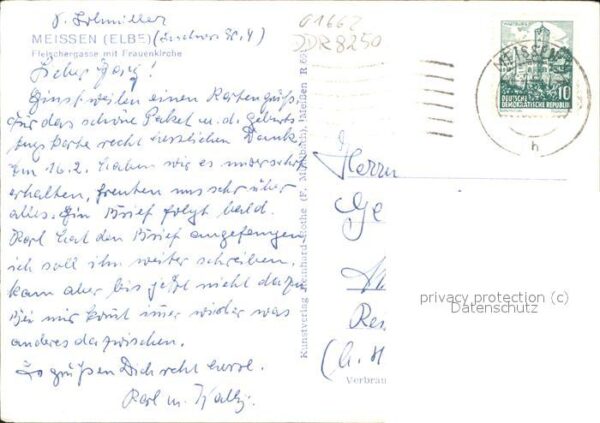 MEISSEN (ELBE)
Fleischergasse mit Frauenkirche
Lieber Georg!
Einstweilen einen Kartengruß.
Für das schöne Paket u. d. Geburts
tagskarte recht herzlichen Dank
Am 16.2. haben wir es unversehrt
erhalten, freuten uns sehr über
alles. Ein Brief folgt bald.
Karl hat den Brief angefangen
ich soll ihn weiter schreiben,
kam aber bis jetzt nicht dazu
Bei mir komt imer wieder was
anderes dazwischen.
Es grüßen Dich recht herzl.
Karl u.
Kunstverlag Reinhard Rothe (F. ), Meißen R 69
01662
DDR 8250
MEISSEN
h
WARTBURG
10
DEUTSCHE
DEMOKRATISCHE REPUBLIK
Herrn
Ge
Res
Verbrau
privacy protection (c)
Datenschutz